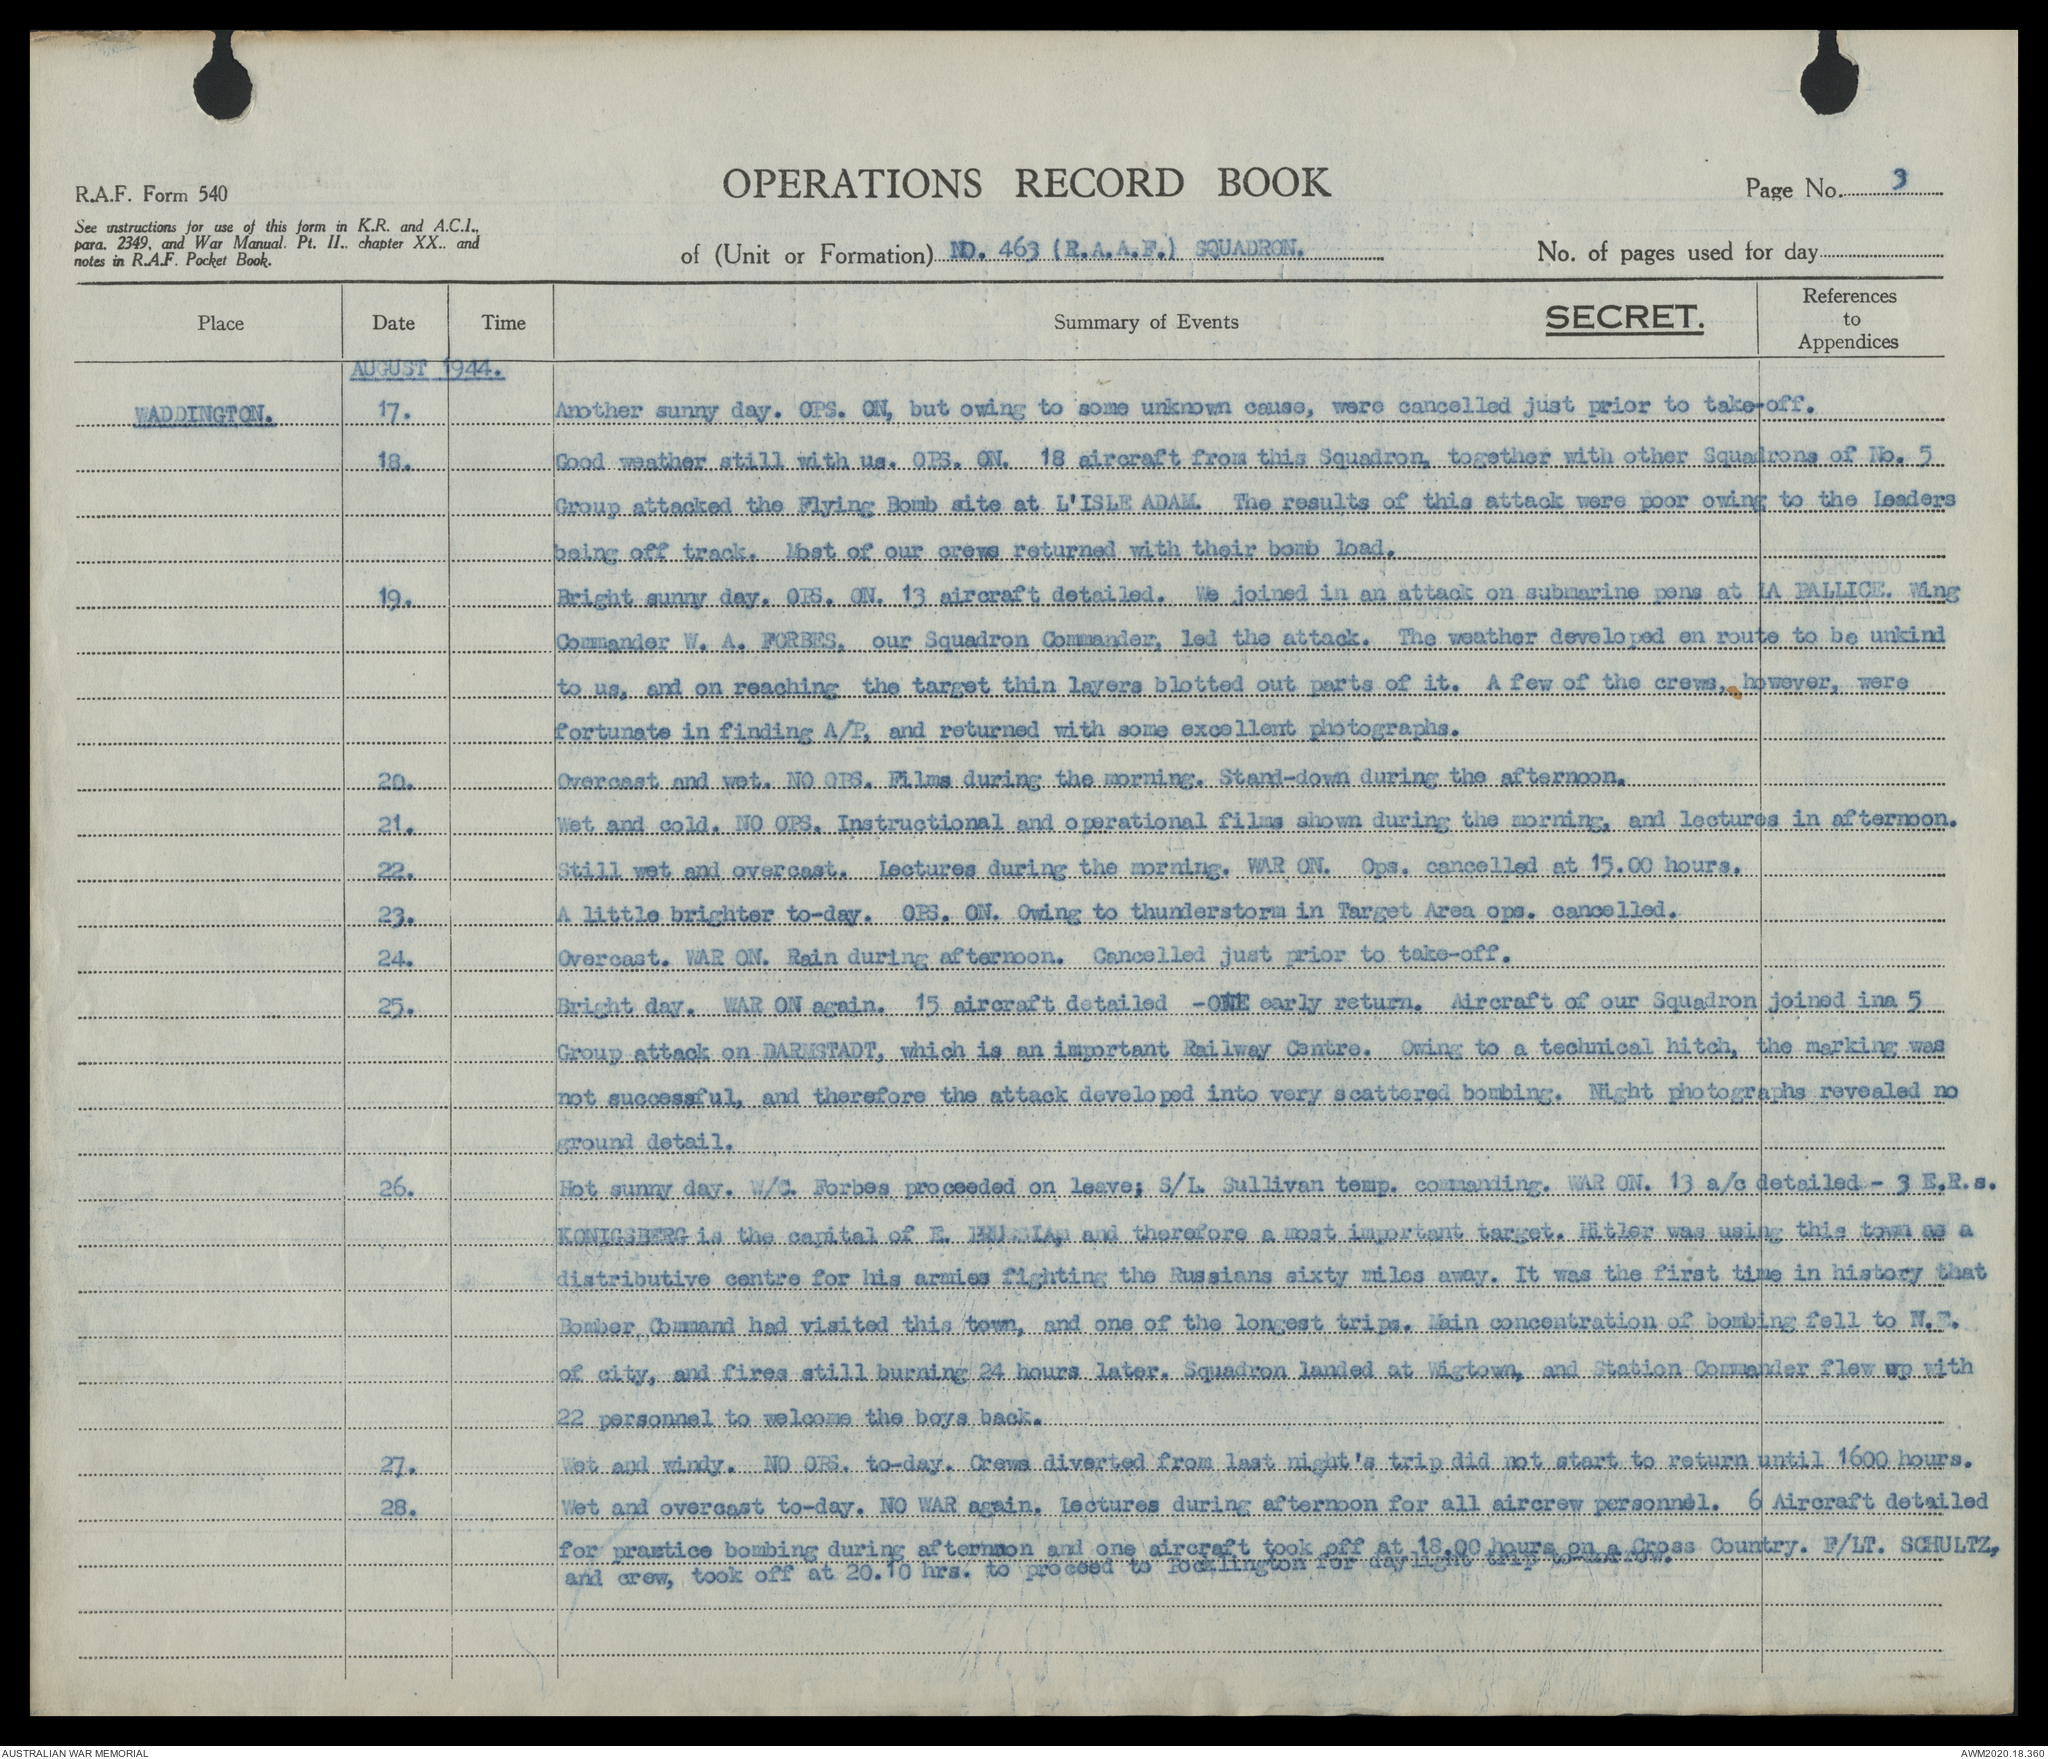 OPERATIONS RECORD BOOK
R.A.F. Form 540
Page No. 3
See instructions for use of this form in K.R. and A.C.I.,
para. 2349, and War Manual. Pt. II., chapter XX., and
notes in R.A.F. Pocket Book.
of (Unit or Formation) NO. 463 (R.A.A.F.) SQUADRON.
No. of pages used for day
Place Date Time Summary of Events SECRET. References to Appendices
AUGUST 1944.
WADDINGTON. 17. Another sunny day. OPS. ON, but owing to some unknown cause, were cancelled just prior to take-off.
18. Good weather still with us. OPS. ON. 18 aircraft from this Squadron, together with other Squadrons of No. 5
Group attacked the Flying Bomb site at L'ISLE ADAM. The results of this attack were poor owing to the Leaders
being off track. Most of our crews returned with their bomb load.
19. Bright sunny day. OPS. ON. 13 aircraft detailed. We joined in an attack on submarine pens at LA PALLICE. Wing
Commander W. A. FORBES, our Squadron Commander, led the attack. The weather developed en route to be unkind
to us, and on reaching the target thin layers blotted out parts of it. A few of the crews, however, were
fortunate in finding A/P, and returned with some excellent photographs.
20. Overcast and wet. NO OPS. Films during the morning. Stand-down during the afternoon.
21. Wet and cold. NO OPS. Instructional and operational films shown during the morning, and lectures in afternoon.
22. Still wet and overcast. Lectures during the morning. WAR ON. Ops. cancelled at 15.00 hours.
23. A little brighter to-day. OPS. ON. Owing to thunderstorm in Target Area ops. cancelled.
24. Overcast. WAR ON. Rain during afternoon. Cancelled just prior to take-off.
25. Bright day. WAR ON again. 15 aircraft detailed -ONE early return. Aircraft of our Squadron joined ina 5
Group attack on DARMSTADT, which is an important Railway Centre. Owing to a technical hitch, the marking was
not successful, and therefore the attack developed into very scattered bombing. Night photographs revealed no
ground detail.
26. Hot sunny day. W/C. Forbes proceeded on leave; S/L. Sullivan temp. commanding. WAR ON. 13 a/c detailed - 3 E.R.s.
KONIGSBERG is the capital of E. PRUSSIA, and therefore a most important target. Hitler was using this town as a
distributive centre for his armies fighting the Russians sixty miles away. It was the first time in history that
Bomber Command had visited this town, and one of the longest trips. Main concentration of bombing fell to N.E.
of city, and fires still burning 24 hours later. Squadron landed at Wigtown, and Station Commander flew up with
22 personnel to welcome the boys back.
27. Wet and windy. NO OPS. to-day. Crews diverted from last night's trip did not start to return until 1600 hours.
28. Wet and overcast to-day. NO WAR again. Lectures during afternoon for all aircrew personnel. 6 Aircraft detailed
for practice bombing during afternoon and one aircraft took off at 18.00 hours on a Cross Country. F/LT. SCHULTZ,
and crew, took off at 20.10 hrs. to proceed to Pocklington for daylight trip to-morrow.
AUSTRALIAN WAR MEMORIAL
AWM2020.18.360